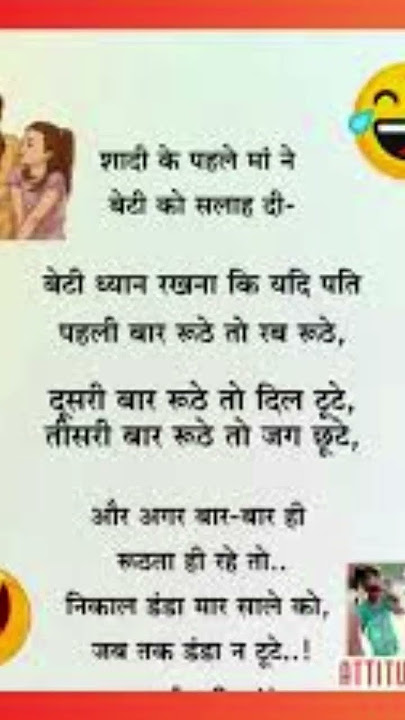 शादी के पहले मां ने
बेटी को सलाह दी-
बेटी ध्यान रखना कि यदि पति
पहली बार रूठे तो रब रूठे,
दूसरी बार रूठे तो दिल टूटे,
तीसरी बार रूठे तो जग छूटे,
और अगर बार-बार ही
रूठता ही रहे तो..
निकाल डंडा मार साले को,
जब तक डंडा न टूटे..!
ATTITU